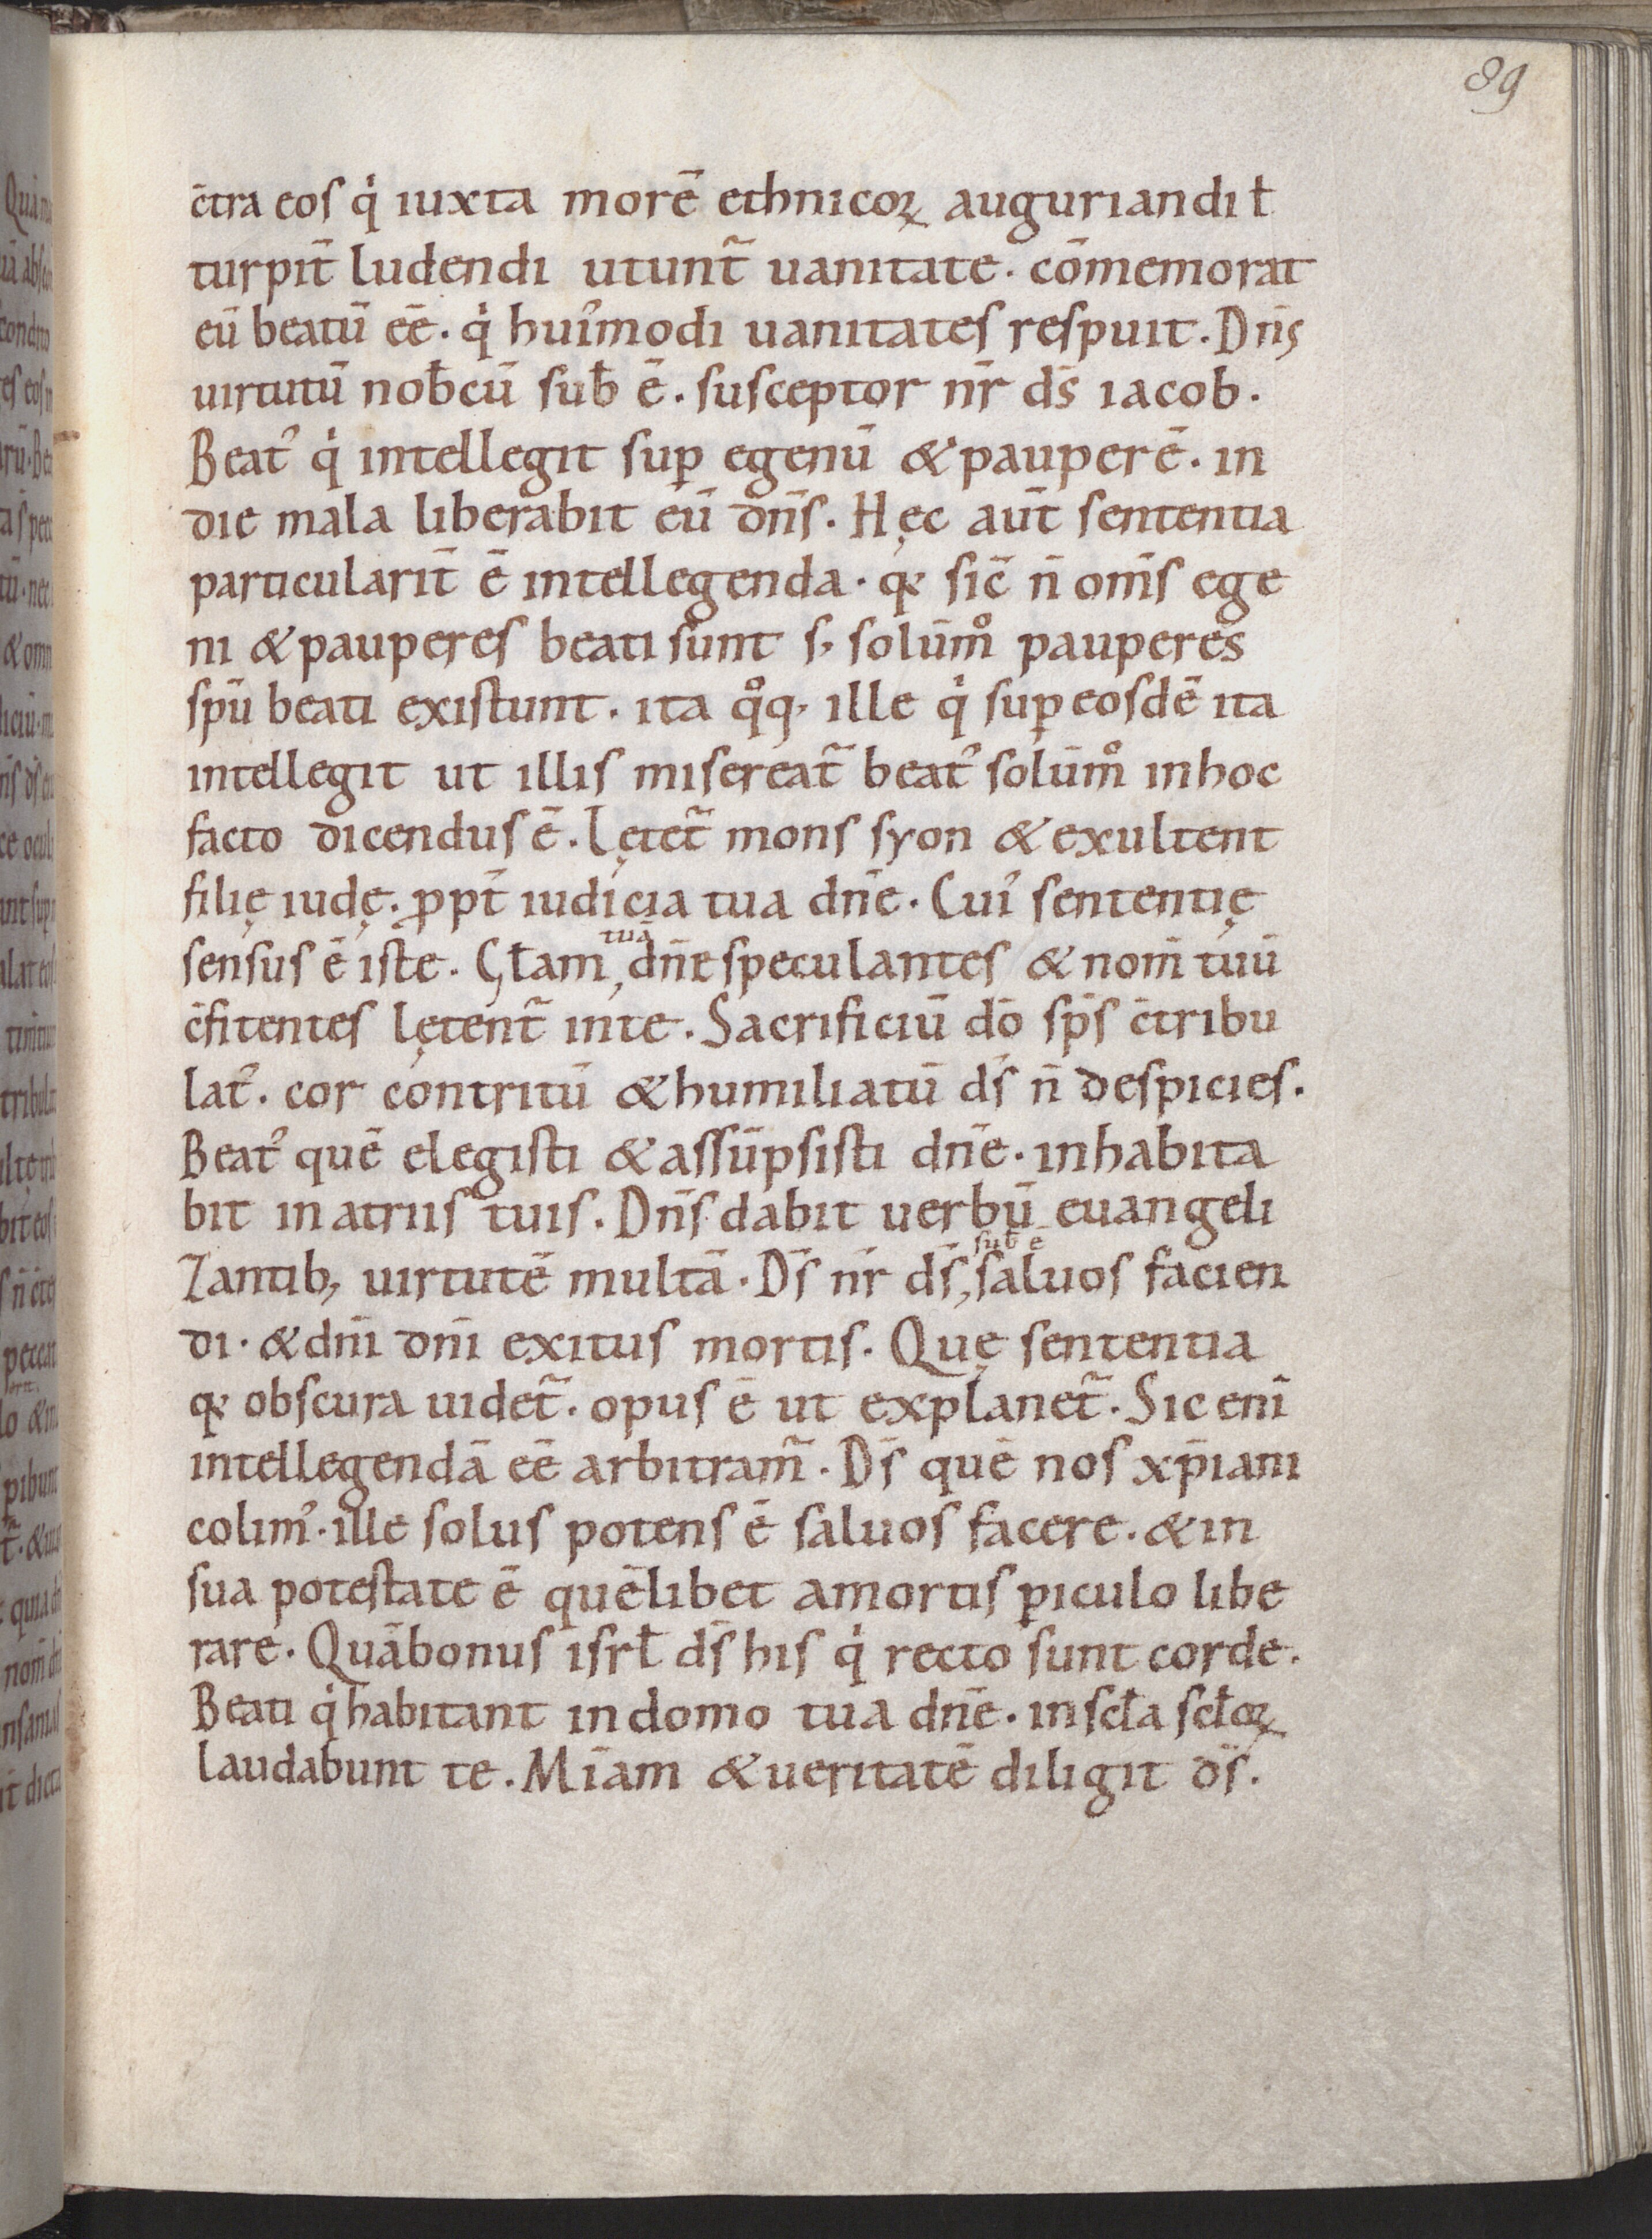 89
c̄tra eos q̇ iuxta morē ethnicoꝝ auguriandi ł
turpit̄ ludendi utunt᷑ uanitate · cōmemorat
eū beatū eē · q̇ hui᾽modi uanitates respuit . Dn̄s
uirtutū nob̄cū sub̄ ē . susceptor nr̄ ds̄ iacob .
Beat᾽ q̇ intellegit sup̲ egenū & pauperē . in
die mala liberabit eū dn̄s . Hęc aūt sententia
particularit̄ ē intellegenda · qꝛ sic̄ n̄ om̄s ege
ni & pauperes beati sunt s; solūm̊ pauperes
sp̄u beati existunt . ita q̊q; ille q̇ sup̲ eosdē ita
intellegit ut illis misereat᷑ beat᾽ solūm̊ in hoc
facto dicendus ē . Lętet᷑ mons syon & exultent
filię iudę . ꝓpt̄ iudicia tua dn̄e . Cui᾽ sententię
tuā
sensus ē iste . Gl̄am, dn̄e speculantes & nom̄ tuū
c̄fitentes lętent᷑ in te . Sacrificiū dō sp̄s c̄tribu
lat᾽ . cor contritū & humiliatū ds̄ n̄ despicies .
Beat᾽ quē elegisti & assūpsisti dn̄e . inhabita
bit in atriis tuis . Dn̄s dabit uerbū euangeli
sub̄ e
Zantib; uirtutē multā . Ds̄ nr̄ ds̄, saluos facien
di . & dn̄i dn̄i exitus mortis . Quę sententia
qꝛ obscura uidet᷑ . opus ē ut explanet᷑ . Sic enī
intellegendā eē arbitram᷑ . Ds̄ quē nos xp̄iani
colim᾽ . ille solus potens ē saluos facere . & in
sua potestate ē quēlibet a mortis ꝑiculo libe
rare . Quā bonus isrł ds̄ his q̇ recto sunt corde .
Beati q̇ habitant in domo tua dn̄e . in scła scłoꝝ
laudabunt te . Mīam & ueritatē diligit ds̄ .